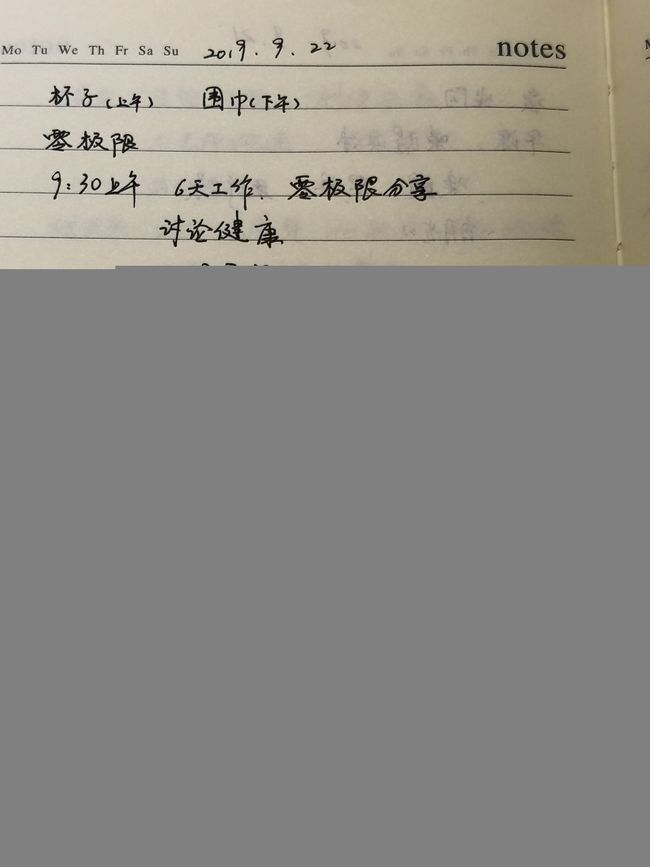 Mo Tu We Th Fr Sa Su 2019.9.22 notes
杯子(上午) 围巾(下午)
零极限
9:30上午 6天工作. 零极限分享
讨论健康